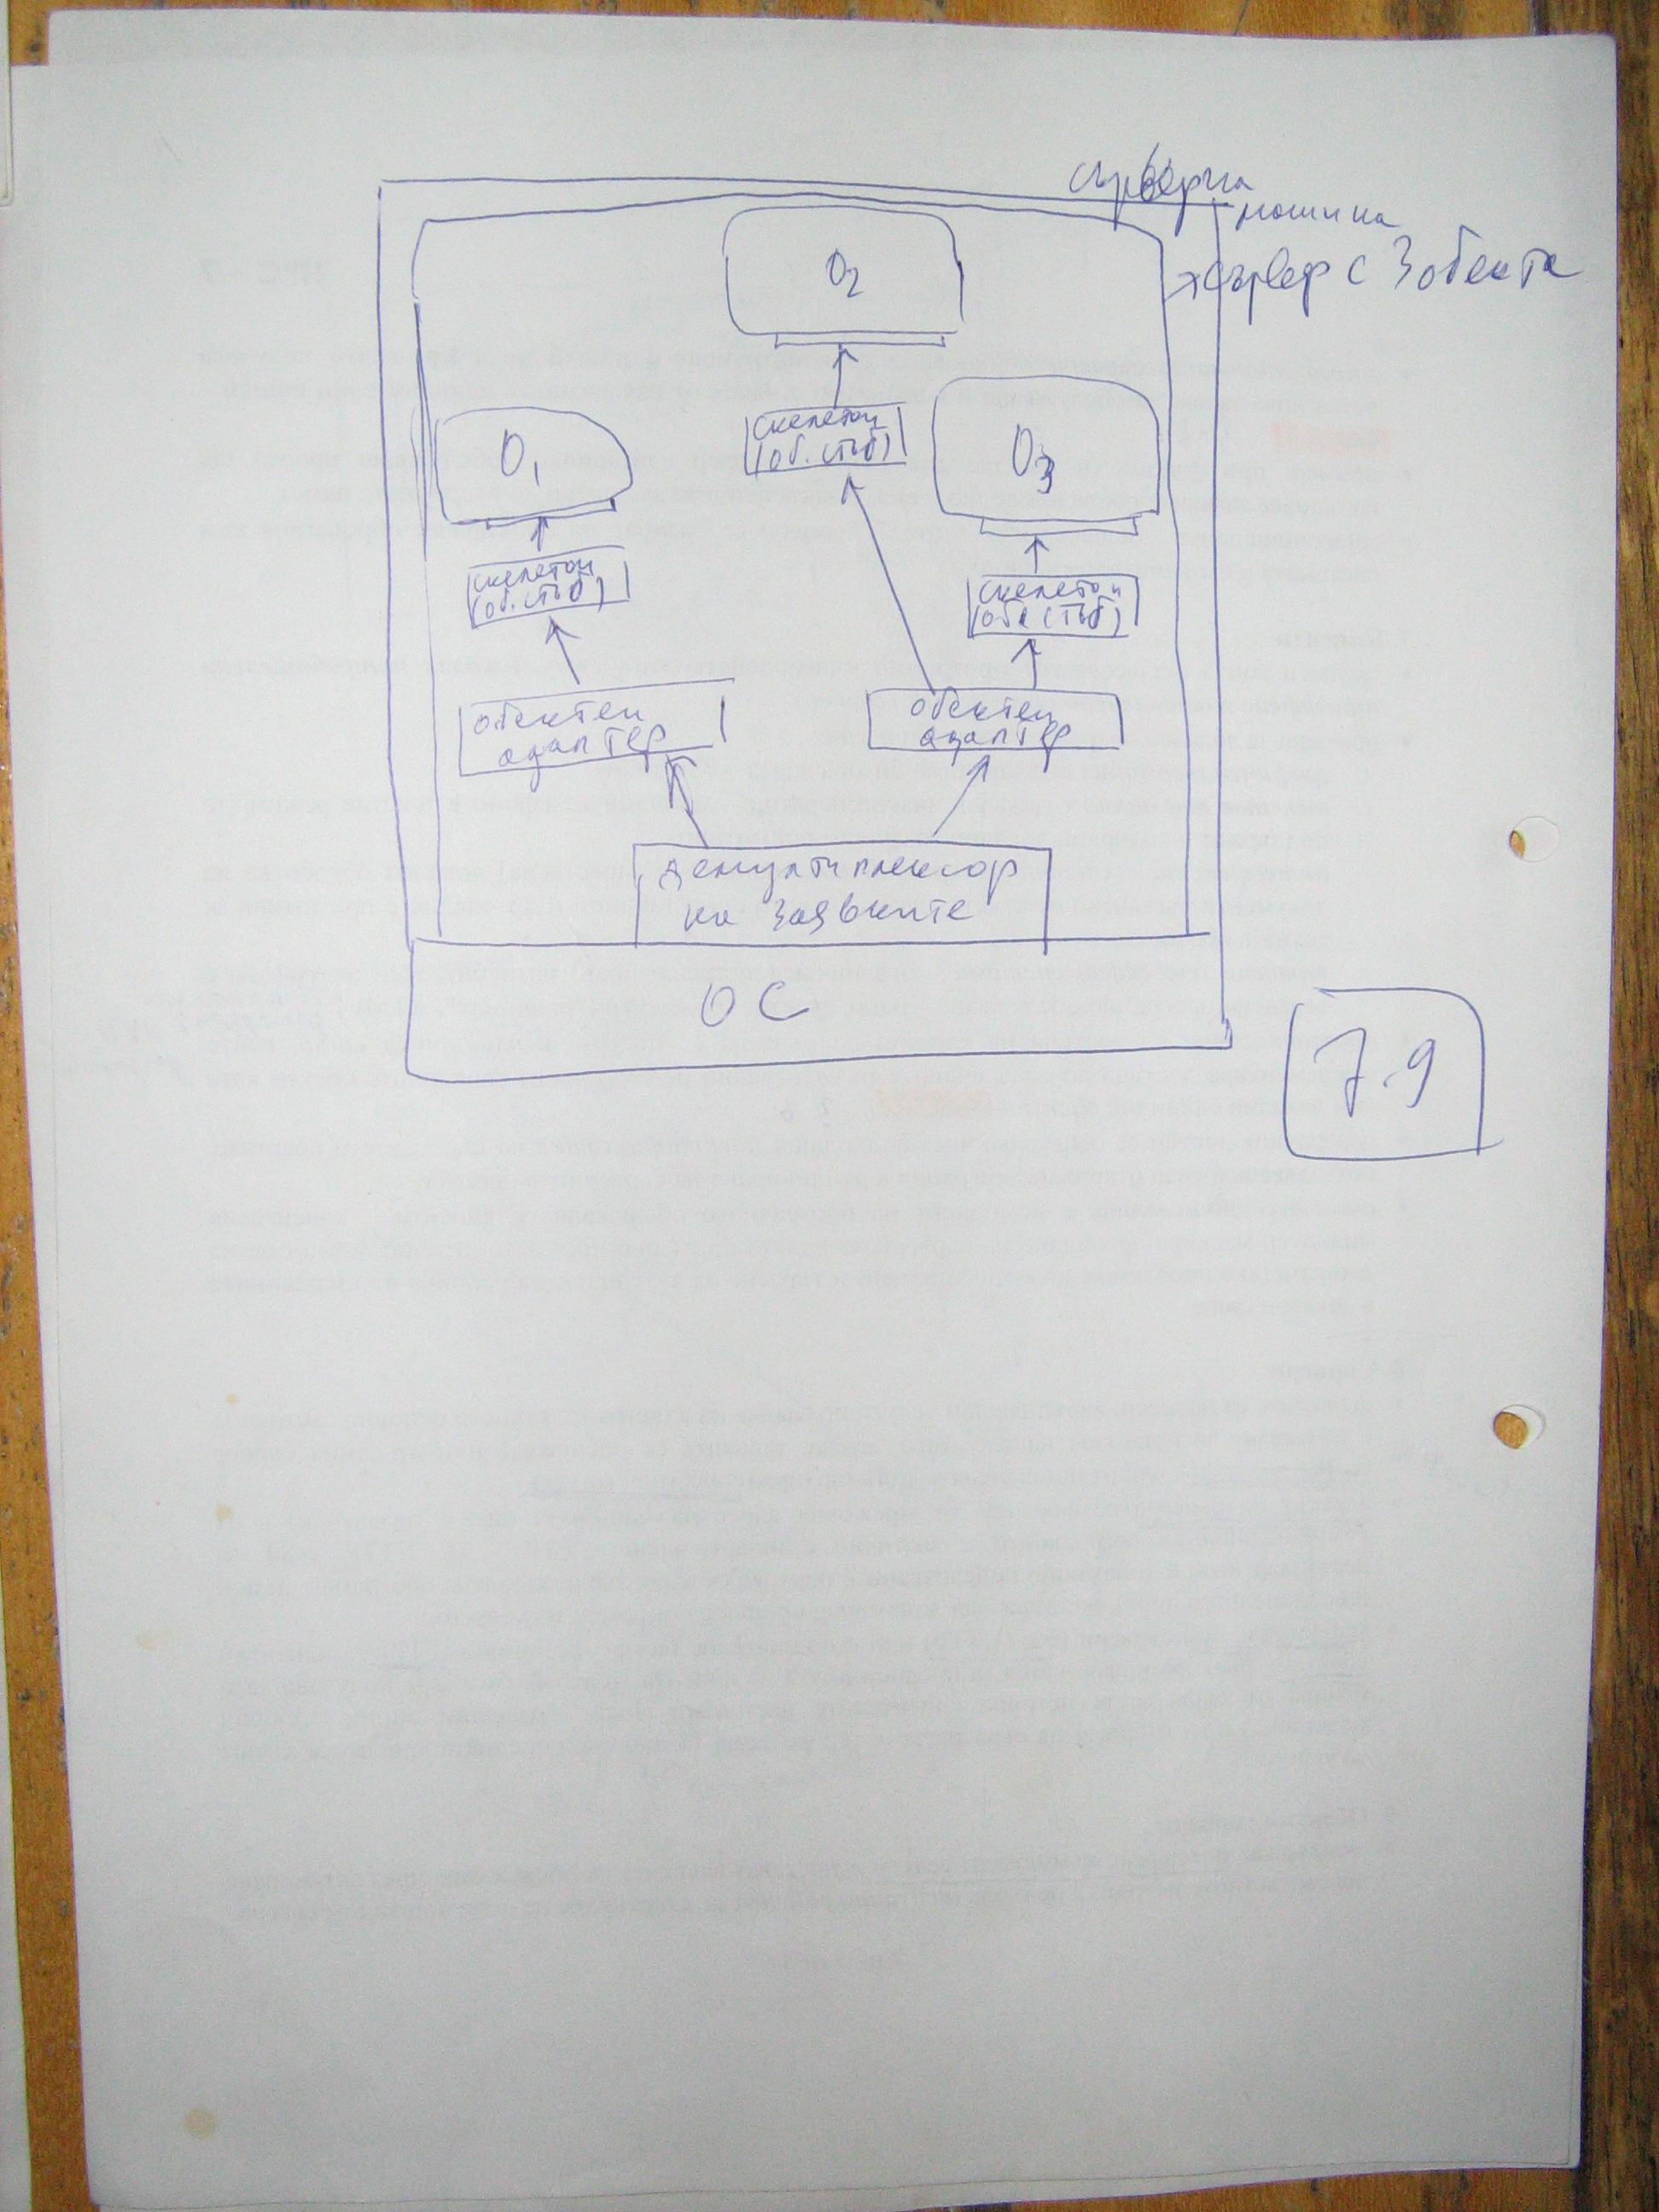 сървърна
машина
сървер с 3 обекта
O2
скелетон
(об. стъб)
O1
O3
скелетон
(об. стъб)
скелетон
(об. стъб)
обектен
адаптер
обектен
адаптер
демултиплексор
на заявките
ОС
7.9